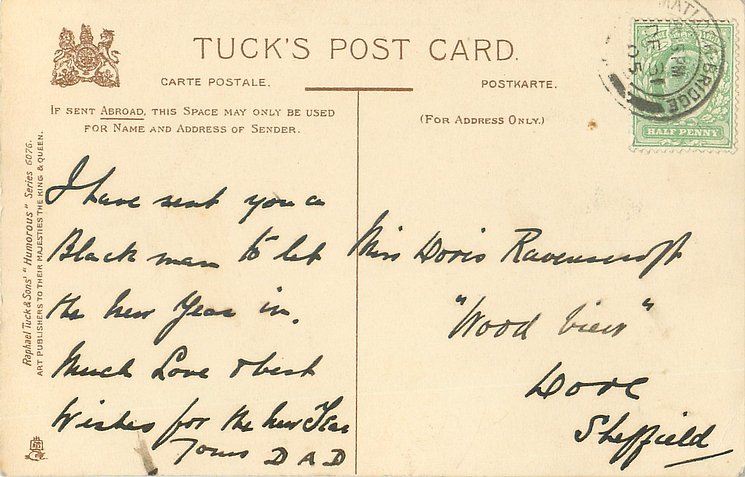 TUCK'S POST CARD.
CARTE POSTALE.
POSTKARTE.
IF SENT ABROAD, THIS SPACE MAY ONLY BE USED
FOR NAME AND ADDRESS OF SENDER.
(FOR ADDRESS ONLY.)
Raphael Tuck & Sons' "Humorous" Series 6076.
ART PUBLISHERS TO THEIR MAJESTIES THE KING & QUEEN.
I have sent you a
Black man to let
the New Year in.
Much Love & best
Wishes for the New Year
Yours DAD
Miss Doris Ravenscroft
"Wood View"
Dore
Sheffield
BRIDGE
PM
DE 31
05
HALF PENNY